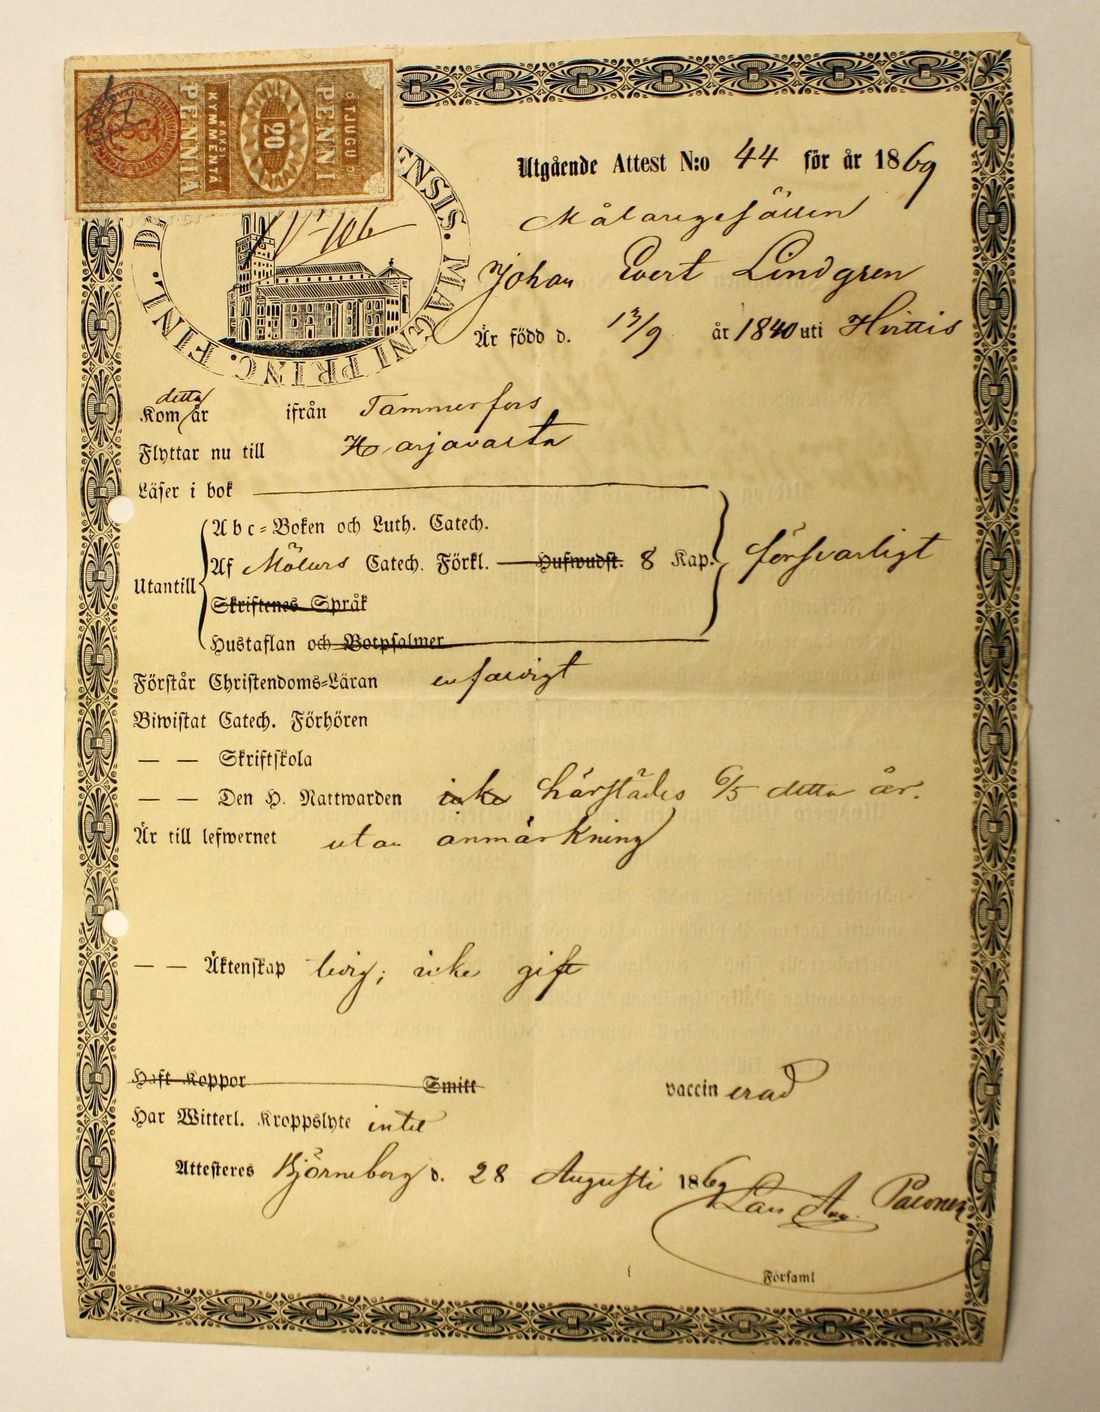 TJUGU
PENNI
20
KAKSI
KYMMENTÄ
PENNIÄ
ENSIS. MAGNI PRINC. FINL. D
Utgående Attest N:o 44 för år 1869
Målaregesällen
Johan Evert Lindgren
Är född d. 13/9 år 1840 uti Hvittis
detta
Kom år ifrån Tammerfors
Flyttar nu till Harjavalta
Läser i bok
Abc=Boken och Luth. Catech.
Utantill Af Möllers Catech. Förkl. Hufwudst. 8 Kap. försvarligt
Skriftenes Språk
Hustaflan och Botpsalmer
Förstår Christendoms=Läran enfaldigt
Biwistat Catech. Förhören
— — Skriftskola
— — Den H. Nattwarden icke härstädes 6/5 detta år.
Är till lefwernet utan anmärkning
— — Äktenskap ledig; icke gift
Haft Koppor Smitt vaccinerad
Har Witterl. Kroppslyte intet
Attesteres Björneborg d. 28 Augusti 1869
Församl